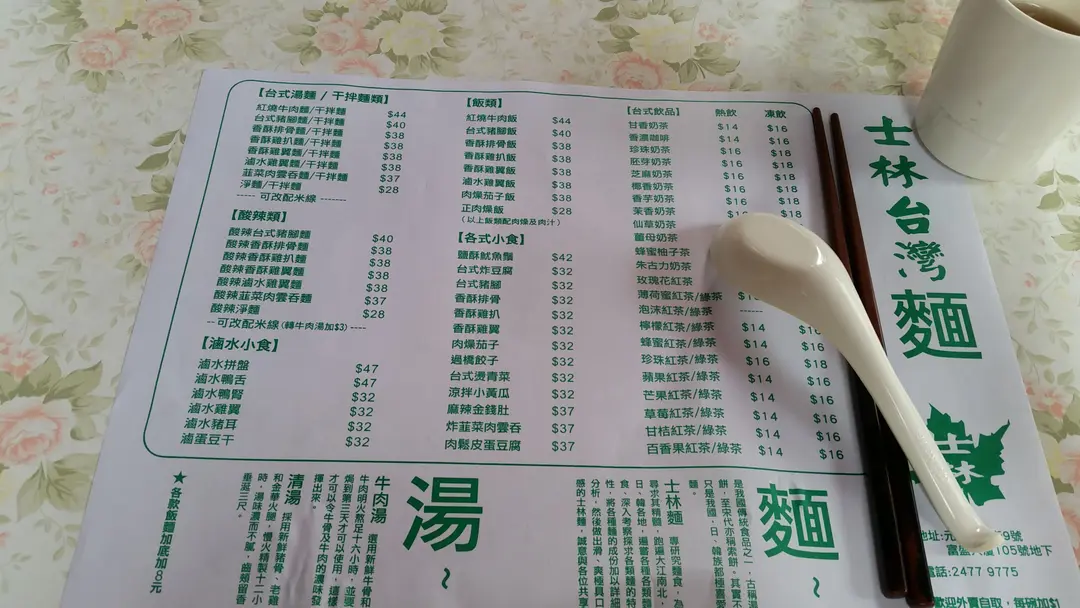 【台式湯麵 / 干拌麵類】
紅燒牛肉麵/干拌麵 $44
台式豬腳麵/干拌麵 $40
香酥排骨麵/干拌麵 $38
香酥雞扒麵/干拌麵 $38
香酥雞翼麵/干拌麵 $38
滷水雞翼麵/干拌麵 $38
韮菜肉雲吞麵/干拌麵 $37
淨麵/干拌麵 $28
------ 可改配米線 -------
【酸辣類】
酸辣台式豬腳麵 $40
酸辣香酥排骨麵 $38
酸辣香酥雞扒麵 $38
酸辣香酥雞翼麵 $38
酸辣滷水雞翼麵 $38
酸辣韮菜肉雲吞麵 $37
酸辣淨麵 $28
--可改配米線(轉牛肉湯加$3)----
【滷水小食】
滷水拼盤 $47
滷水鴨舌 $47
滷水鴨腎 $32
滷水雞翼 $32
滷水豬耳 $32
滷蛋豆干 $32
【飯類】
紅燒牛肉飯 $44
台式豬腳飯 $40
香酥排骨飯 $38
香酥雞扒飯 $38
香酥雞翼飯 $38
滷水雞翼飯 $38
肉燥茄子飯 $38
正肉燥飯 $28
(以上飯類配肉燥及肉汁)
【各式小食】
鹽酥魷魚鬚 $42
台式炸豆腐 $32
台式豬腳 $32
香酥排骨 $32
香酥雞扒 $32
香酥雞翼 $32
肉燥茄子 $32
過橋餃子 $32
台式燙青菜 $32
涼拌小黃瓜 $32
麻辣金錢肚 $37
炸韮菜肉雲吞 $37
肉鬆皮蛋豆腐 $37
【台式飲品】 熱飲 凍飲
甘香奶茶 $14 $16
香濃咖啡 $14 $16
珍珠奶茶 $16 $18
胚芽奶茶 $16 $18
芝麻奶茶 $16 $18
椰香奶茶 $16 $18
香芋奶茶 $16 $18
茉香奶茶 $18
仙草奶茶
薑母奶茶
蜂蜜柚子茶
朱古力奶茶
玫瑰花紅茶
薄荷蜜紅茶/綠茶
泡沫紅茶/綠茶 ------
檸檬紅茶/綠茶 $14
蜂蜜紅茶/綠茶 $14 $16
珍珠紅茶/綠茶 $16 $18
蘋果紅茶/綠茶 $14 $16
芒果紅茶/綠茶 $14 $16
草莓紅茶/綠茶 $14 $16
甘桔紅茶/綠茶 $14 $16
百香果紅茶/綠茶 $14 $16
士林台灣麵
士林
9號
105號地下
電話:2477 9775
歡迎外賣自取
麵~
是我國傳統食品之一,古稱湯
餅,至宋代亦稱索餅。其實不
只是我國,日、韓族都極喜愛
麵。
士林麵 專研究麵食,為
尋求其精髓,跑遍大江南北,
日、韓各地,遍嘗各種各類麵
食,深入考察探求各類麵的特
性,將各種麵的成份加以詳細
分析,然後做出滑、爽極具口
感的士林麵,誠意與各位共享
湯~
牛肉湯 選用新鮮牛骨和
牛肉明火熬足十六小時,並要
焗到第三天才可以使用,這樣
才可以令牛骨及牛肉的濃味發
揮出來。
清湯 採用新鮮豬骨、老雞
和金華火腿,慢火精製十二小
時,湯味濃而不膩,齒頰留香
垂涎三尺。
★各款飯麵加底加8元